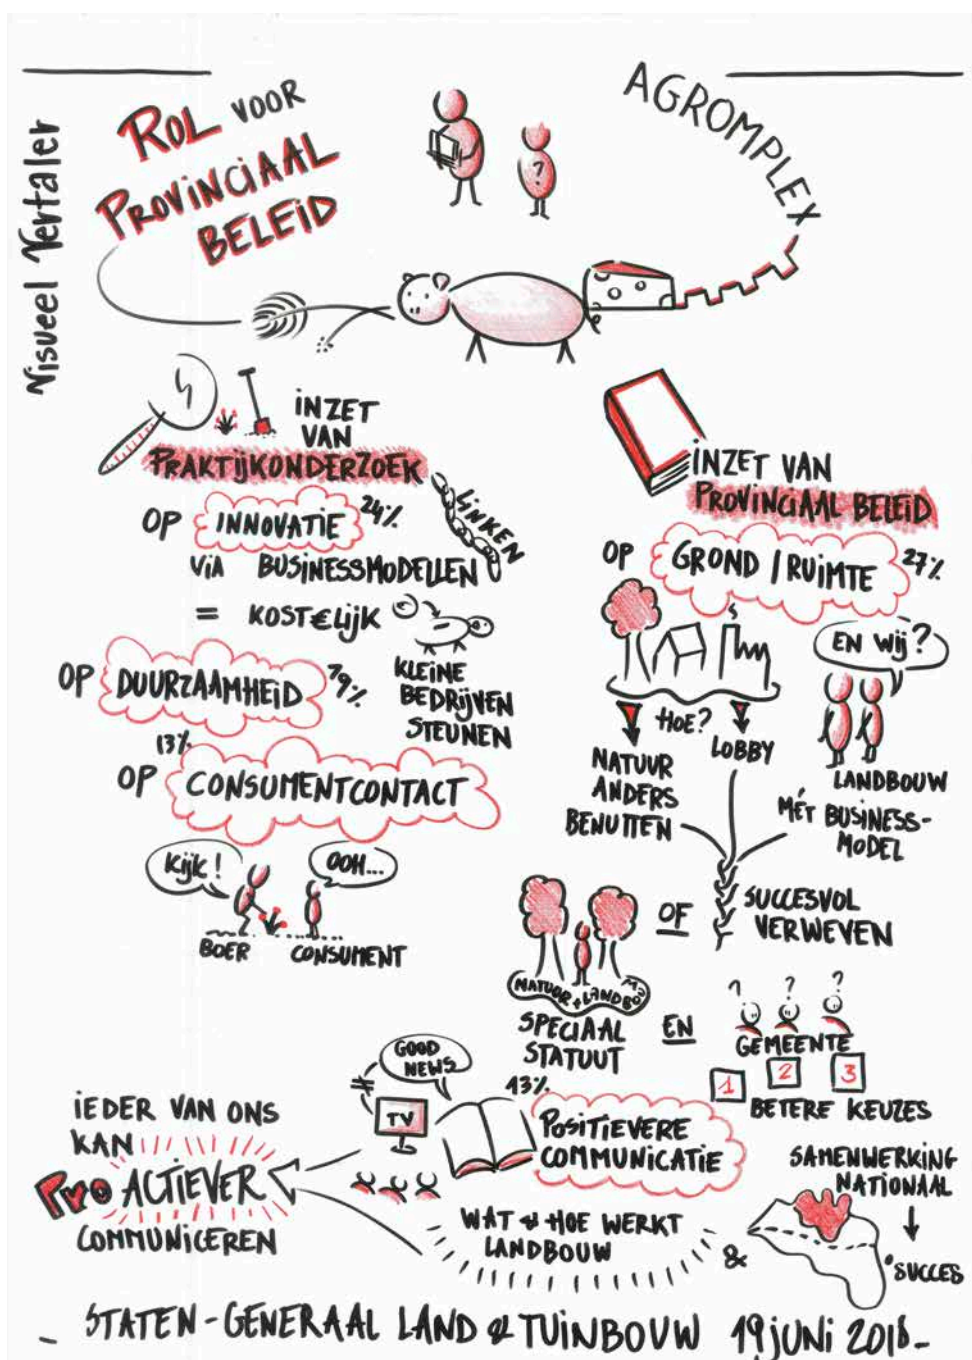 Visueel Vertaler
ROL VOOR
PROVINCIAAL
BELEID
?
AGROMPLEX
INZET
VAN
PRAKTIJKONDERZOEK
LINKEN
OP INNOVATIE 24%
VIA BUSINESSMODELLEN
= KOST€LIJK
KLEINE
BEDRIJVEN
STEUNEN
OP DUURZAAMHEID 79%
13%
OP CONSUMENTCONTACT
KIJK!
OOH...
BOER
CONSUMENT
INZET VAN
PROVINCIAAL BELEID
OP GROND / RUIMTE 27%
EN WIJ?
HOE?
LOBBY
NATUUR
ANDERS
BENUTTEN
LANDBOUW
MÉT BUSINESS-
MODEL
OF
SUCCESVOL
VERWEVEN
NATUUR + LANDBOUW
SPECIAAL
STATUUT
EN
? ? ?
GEMEENTE
1 2 3
BETERE KEUZES
GOOD
NEWS
≠
TV
13%
POSITIEVERE
COMMUNICATIE
IEDER VAN ONS
KAN
PRO ACTIEVER
COMMUNICEREN
WAT & HOE WERKT
LANDBOUW
&
SAMENWERKING
NATIONAAL
SUCCES
STATEN-GENERAAL LAND & TUINBOUW 19 JUNI 2018-